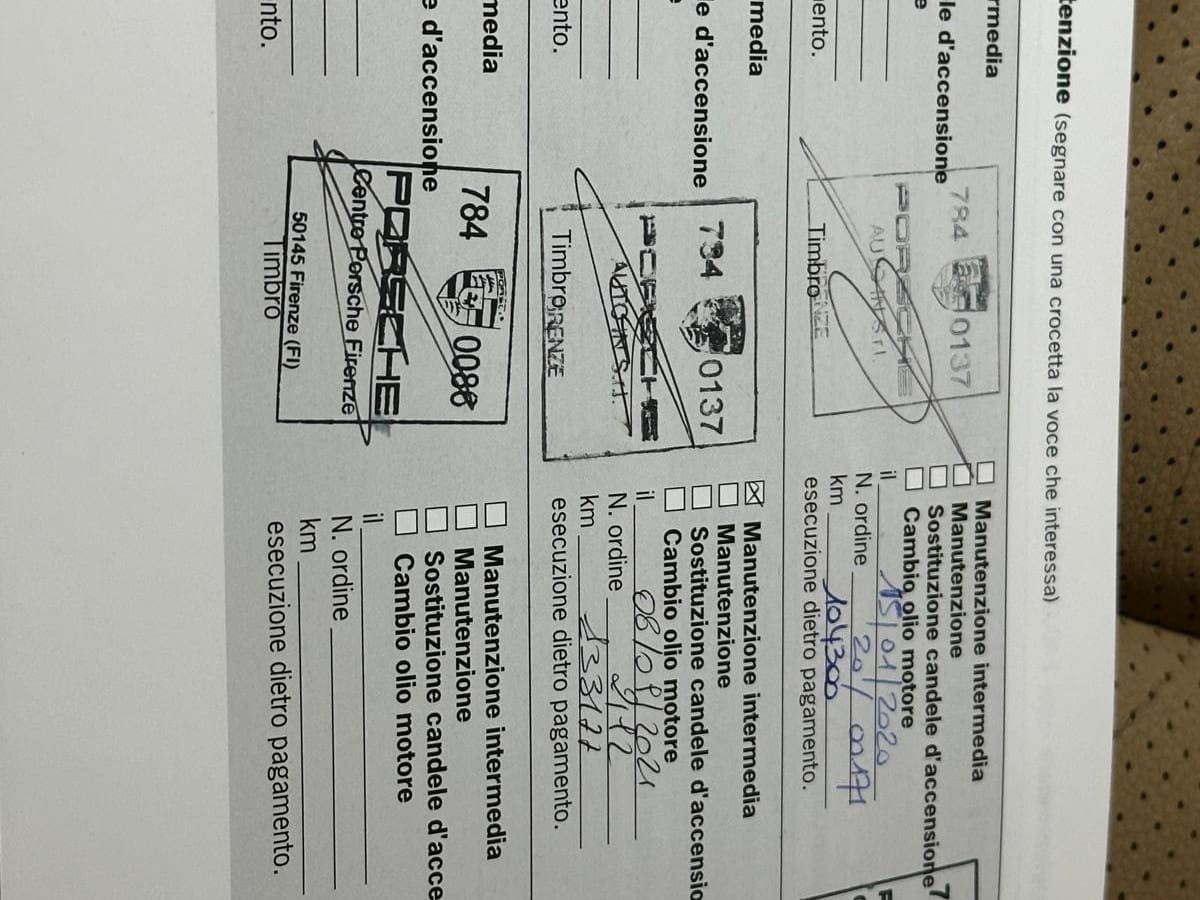 tenzione (segnare con una crocetta la voce che interessa)
rmedia
le d'accensione
e
ento.
784 0137
PORSCHE
AUTOIN S.r.l.
Timbro
Manutenzione intermedia
Manutenzione
Sostituzione candele d'accensione
Cambio olio motore
il 15/01/2020
N. ordine 20/ 00171
km 104300
esecuzione dietro pagamento.
7
media
le d'accensione
e
ento.
784 0137
PORSCHE
AUTOIN S.r.l.
Timbro FIRENZE
Manutenzione intermedia
Manutenzione
Sostituzione candele d'accensio
Cambio olio motore
il
N. ordine
km 133177
esecuzione dietro pagamento.
media
e d'accensione
nto.
784 0088
PORSCHE
Centro Porsche Firenze
50145 Firenze (FI)
Timbro
Manutenzione intermedia
Manutenzione
Sostituzione candele d'acce
Cambio olio motore
il
N. ordine
km
esecuzione dietro pagamento.